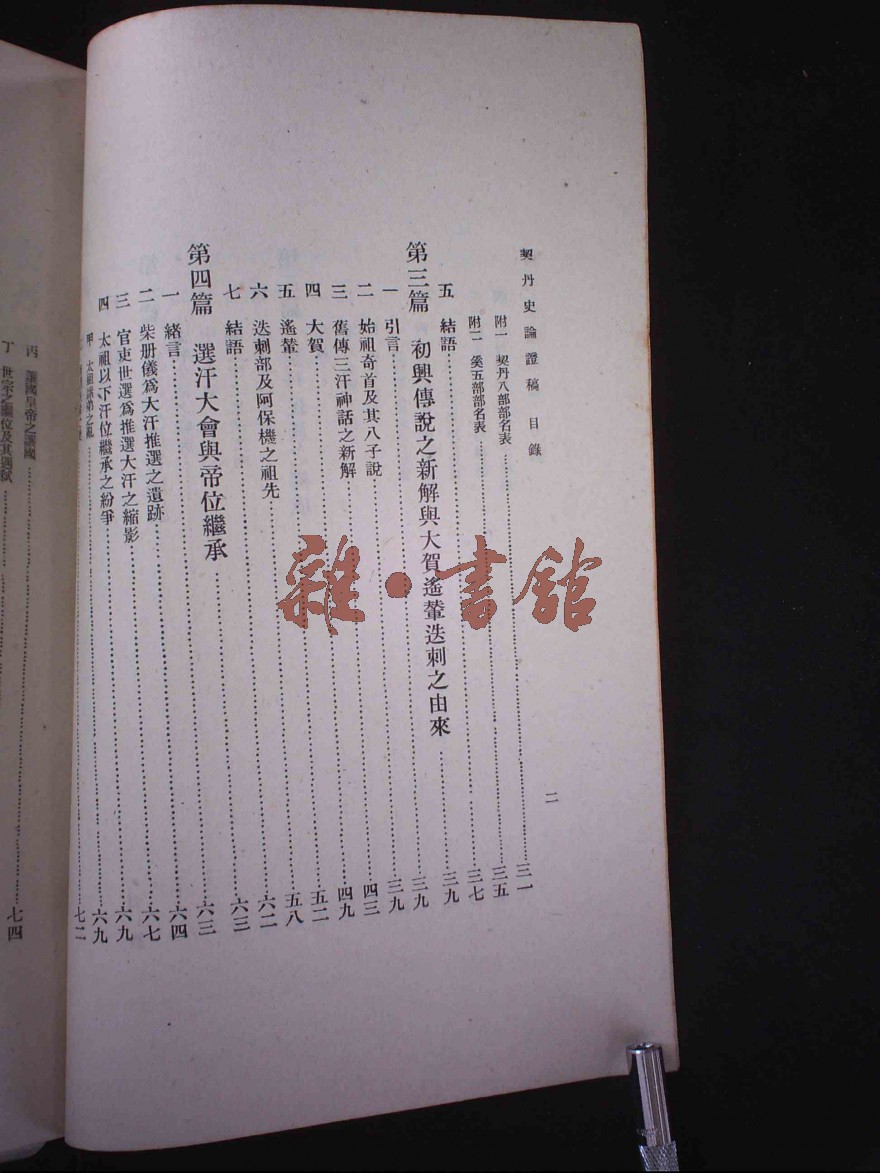 契丹史論證稿 目錄 二
附一 契丹八部部名表 三一
附二 奚五部部名表 三五
五 結語 三七
第三篇 初興傳說之新解與大賀遙輦迭刺之由來 三九
一 引言 三九
二 始祖奇首及其八子說 三九
三 舊傳三汗神話之新解 四三
四 大賀 四九
五 遙輦 五二
六 迭刺部及阿保機之祖先 五八
七 結語 六二
第四篇 選汗大會與帝位繼承 六三
一 緒言 六三
二 柴册儀爲大汗推選之遺跡 六四
三 官吏世選爲推選大汗之縮影 六七
四 太祖以下汗位繼承之紛爭 六九
甲 太祖諸弟之亂 六九
七二
丙 讓國皇帝之讓國 七四
丁 世宗之繼位及其遇弒
雜·書館